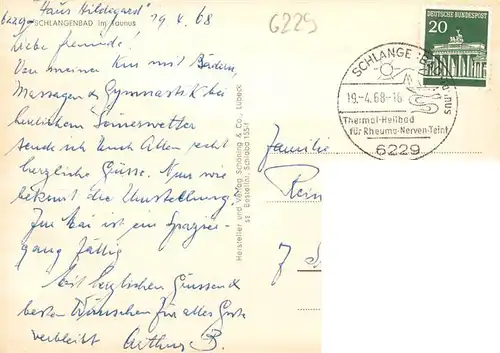 "Haus Hildegard"
6229 SCHLANGENBAD im Taunus 19 4. 68
6229
Liebe Freunde!
Von meiner Kur mit Bädern,
Massagen & Gymnastik bei
herrlichem Sonnenwetter
sende ich Euch Allen recht
herzliche Grüsse. Nun wie
bekommt die Umstellung.
Im Mai ist ein Spazier-
gang fällig
Mit herzlichen Grüssen &
besten Wünschen für alles Gute
verbleibt Arthur B.
Hersteller und Verlag Schöning & Co., Lübeck
DEUTSCHE BUNDESPOST
20
SCHLANGENBAD
19.-4.68-16
Thermal-Heilbad
für Rheuma-Nerven-Teint
6229
Familie